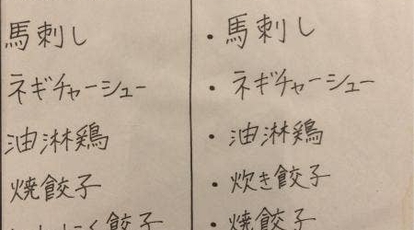 馬刺し
ネギチャーシュー
油淋鶏
焼餃子
餃子
・馬刺し
・ネギチャーシュー
・油淋鶏
・炊き餃子
・焼餃子